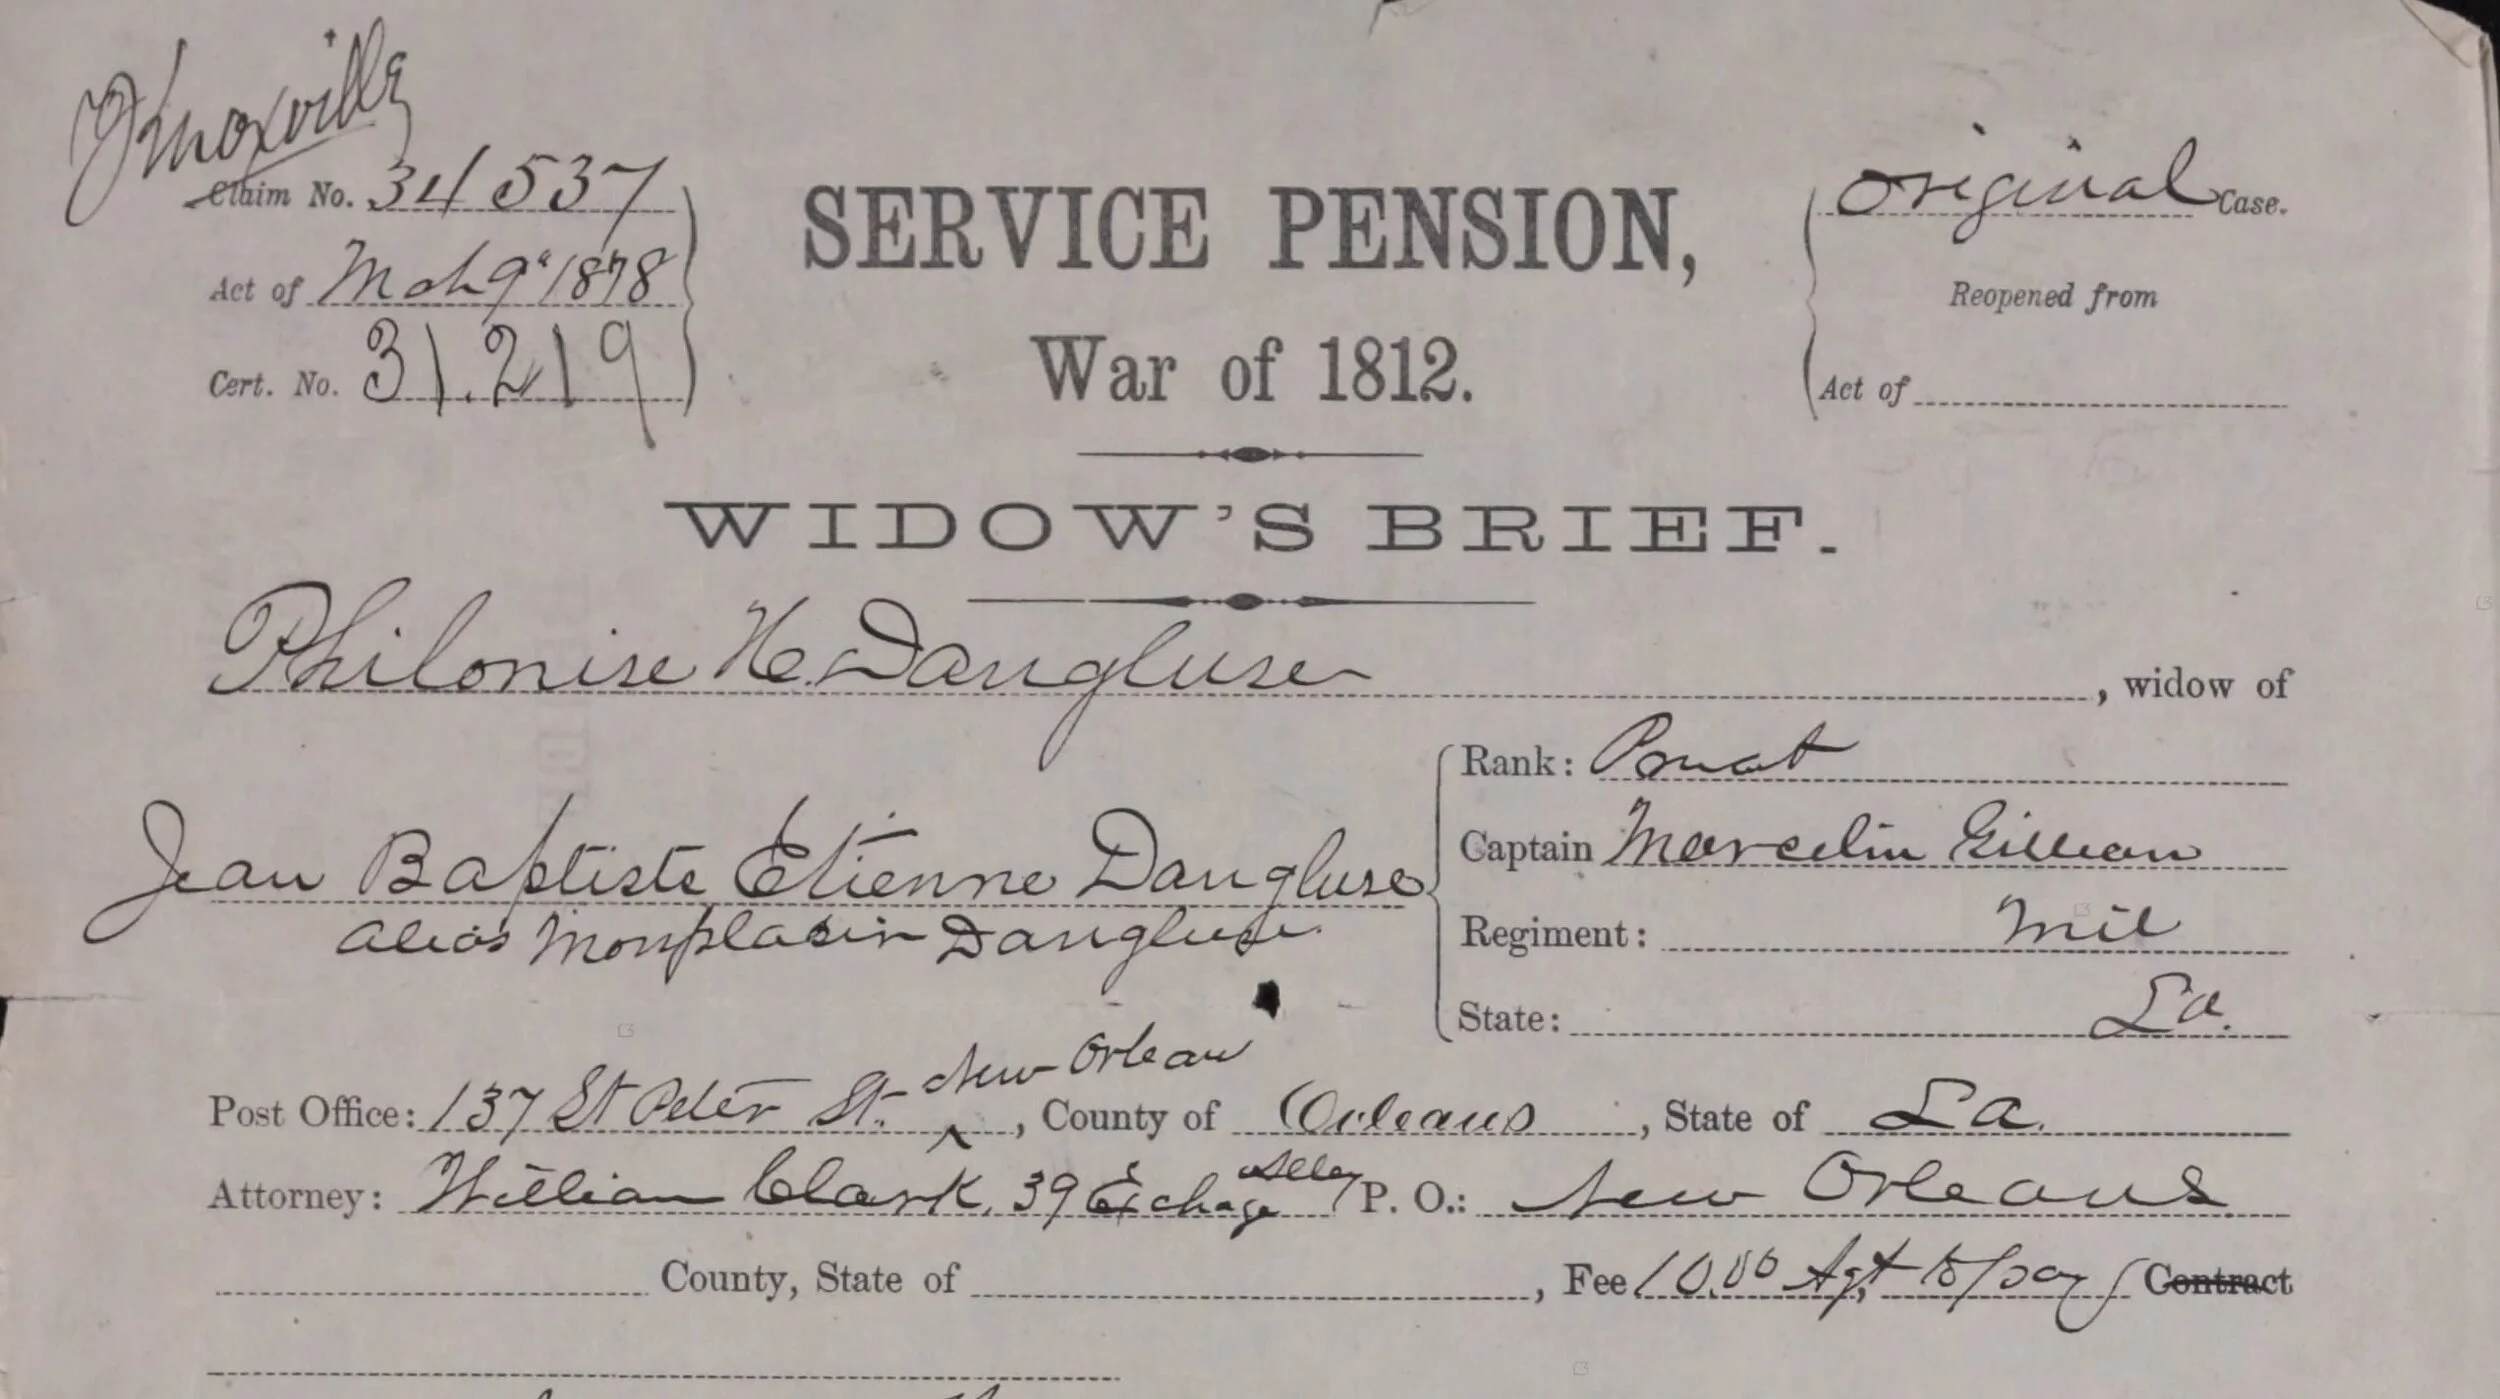 Knoxville
Claim No. 34537
Act of Mch 9" 1878
Cert. No. 31.219
SERVICE PENSION,
War of 1812.
original Case.
Reopened from
Act of
WIDOW'S BRIEF.
Philonise H. Dangluse, widow of
Jean Baptiste Etienne Dangluse
alias Monplaisir Dangluse.
Rank: Privat
Captain Marcelin Gillean
Regiment: Mil
State: La.
Post Office: 137 St Peter St. New Orleans, County of Orleans, State of La.
Attorney: William Clark, 39 Exchage Alley P. O.: New Orleans
County, State of , Fee 10.00 Agt, to pay Contract